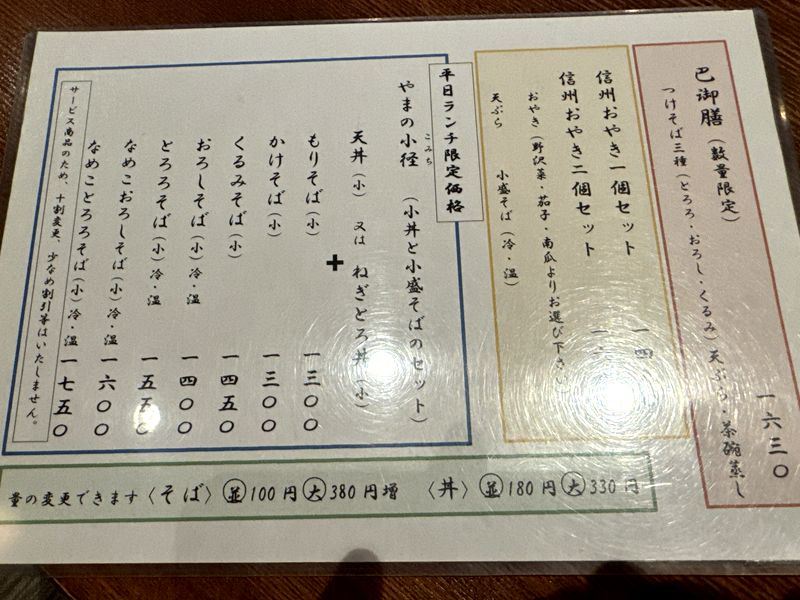 巴御膳（数量限定）
つけそば三種（とろろ・おろし・くるみ）天ぷら・茶碗蒸し
一六三〇
信州おやき一個セット 一四
信州おやき二個セット 一
おやき（野沢菜・茄子・南瓜よりお選び下さい）
天ぷら 小盛そば（冷・温）
平日ランチ限定価格
やまの小径（小丼と小盛そばのセット）
こみち
天丼（小） 又は ねぎとろ丼（小）
+
もりそば（小） 一三〇〇
かけそば（小） 一三〇〇
くるみそば（小） 一四五〇
おろしそば（小）冷・温 一四〇〇
とろろそば（小）冷・温 一五五〇
なめこおろしそば（小）冷・温 一六〇〇
なめことろろそば（小）冷・温 一七五〇
サービス商品のため、十割変更、少なめ割引等はいたしません。
量の変更できます〈そば〉並100円大380円増 〈丼〉並180円大330円